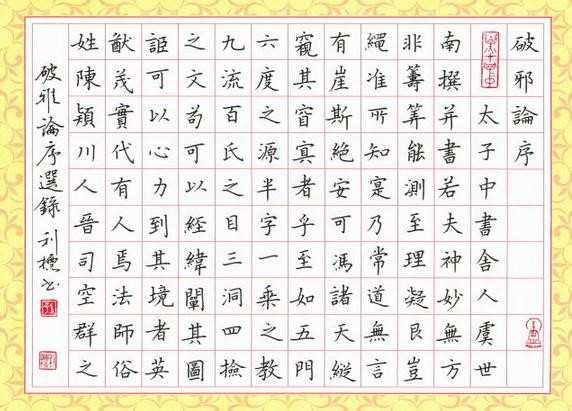 破邪論序
太子中書舍人虞世
南撰并書若夫神妙無方
非籌筭能測至理凝艮豈
繩准所知寔乃常道無言
有崖斯絕安可馮諸天縱
窺其窅冥者乎至如五門
六度之源半字一乘之教
九流百氏之目三洞四撿
之文苟可以經緯闡其圖
詎可以心力到其境者英
猷茂實代有人焉法師俗
姓陳穎川人晉司空群之
破雅論序選錄 利標書